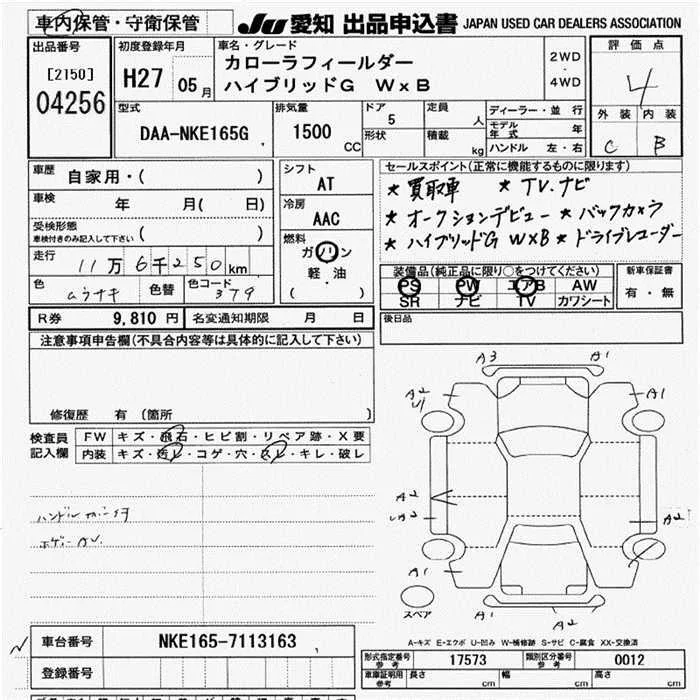 車内保管・守衛保管
JU 愛知 出品申込書 JAPAN USED CAR DEALERS ASSOCIATION
出品番号
[2150]
04256
初度登録年月
H27 05月
車名・グレード
カローラフィールダー
ハイブリッドG W×B
2WD
・
4WD
評価点
4
外装 内装
C B
型式
DAA-NKE165G
排気量
1500 CC
ドア
5
形状
定員
人
積載
kg
ディーラー・並行
モデル年式 年
ハンドル 左・右
車歴
自家用・( )
車検 年 月( 日)
受検形態
車検付きのみ記入して下さい ( )
走行 11万6千250km
色 ムラサキ 色替 色コード 379
シフト
AT
冷房
AAC
燃料
ガソリン
軽・油
( )
セールスポイント(正常に機能するものに限ります)
★ 買取車 ★ TV.ナビ
★ オークションデビュー ★ バックカメラ
★ ハイブリッドG W×B ★ ドライブレコーダー
装備品(純正品に限り○をつけてください)
PS PW エアB AW
SR ナビ TV カワシート
新車保証書
有・無
R券 9,810円 名変通知期限 月 日
後日品
注意事項申告欄(不具合内容等は具体的に記入して下さい)
修復歴 有 (箇所 )
検査員記入欄
FW キズ・飛石・ヒビ割・リペア跡・X要
内装 キズ・汚レ・コゲ・穴・スレ・キレ・破レ
ハンドルカバー付
ボディーAU.
A3 A1
A2
U1
A1
A2
A2
A2
A1
A1
A2
スペア
A-キズ E-エクボ U-凹み W-補修跡 S-サビ C-腐食 XX-交換済
車台番号 NKE165-7113163
登録番号
型式指定番号 参考 17573 類別区分番号 参考 0012
車庫証明用 参考 長さ cm 幅 cm 高さ cm